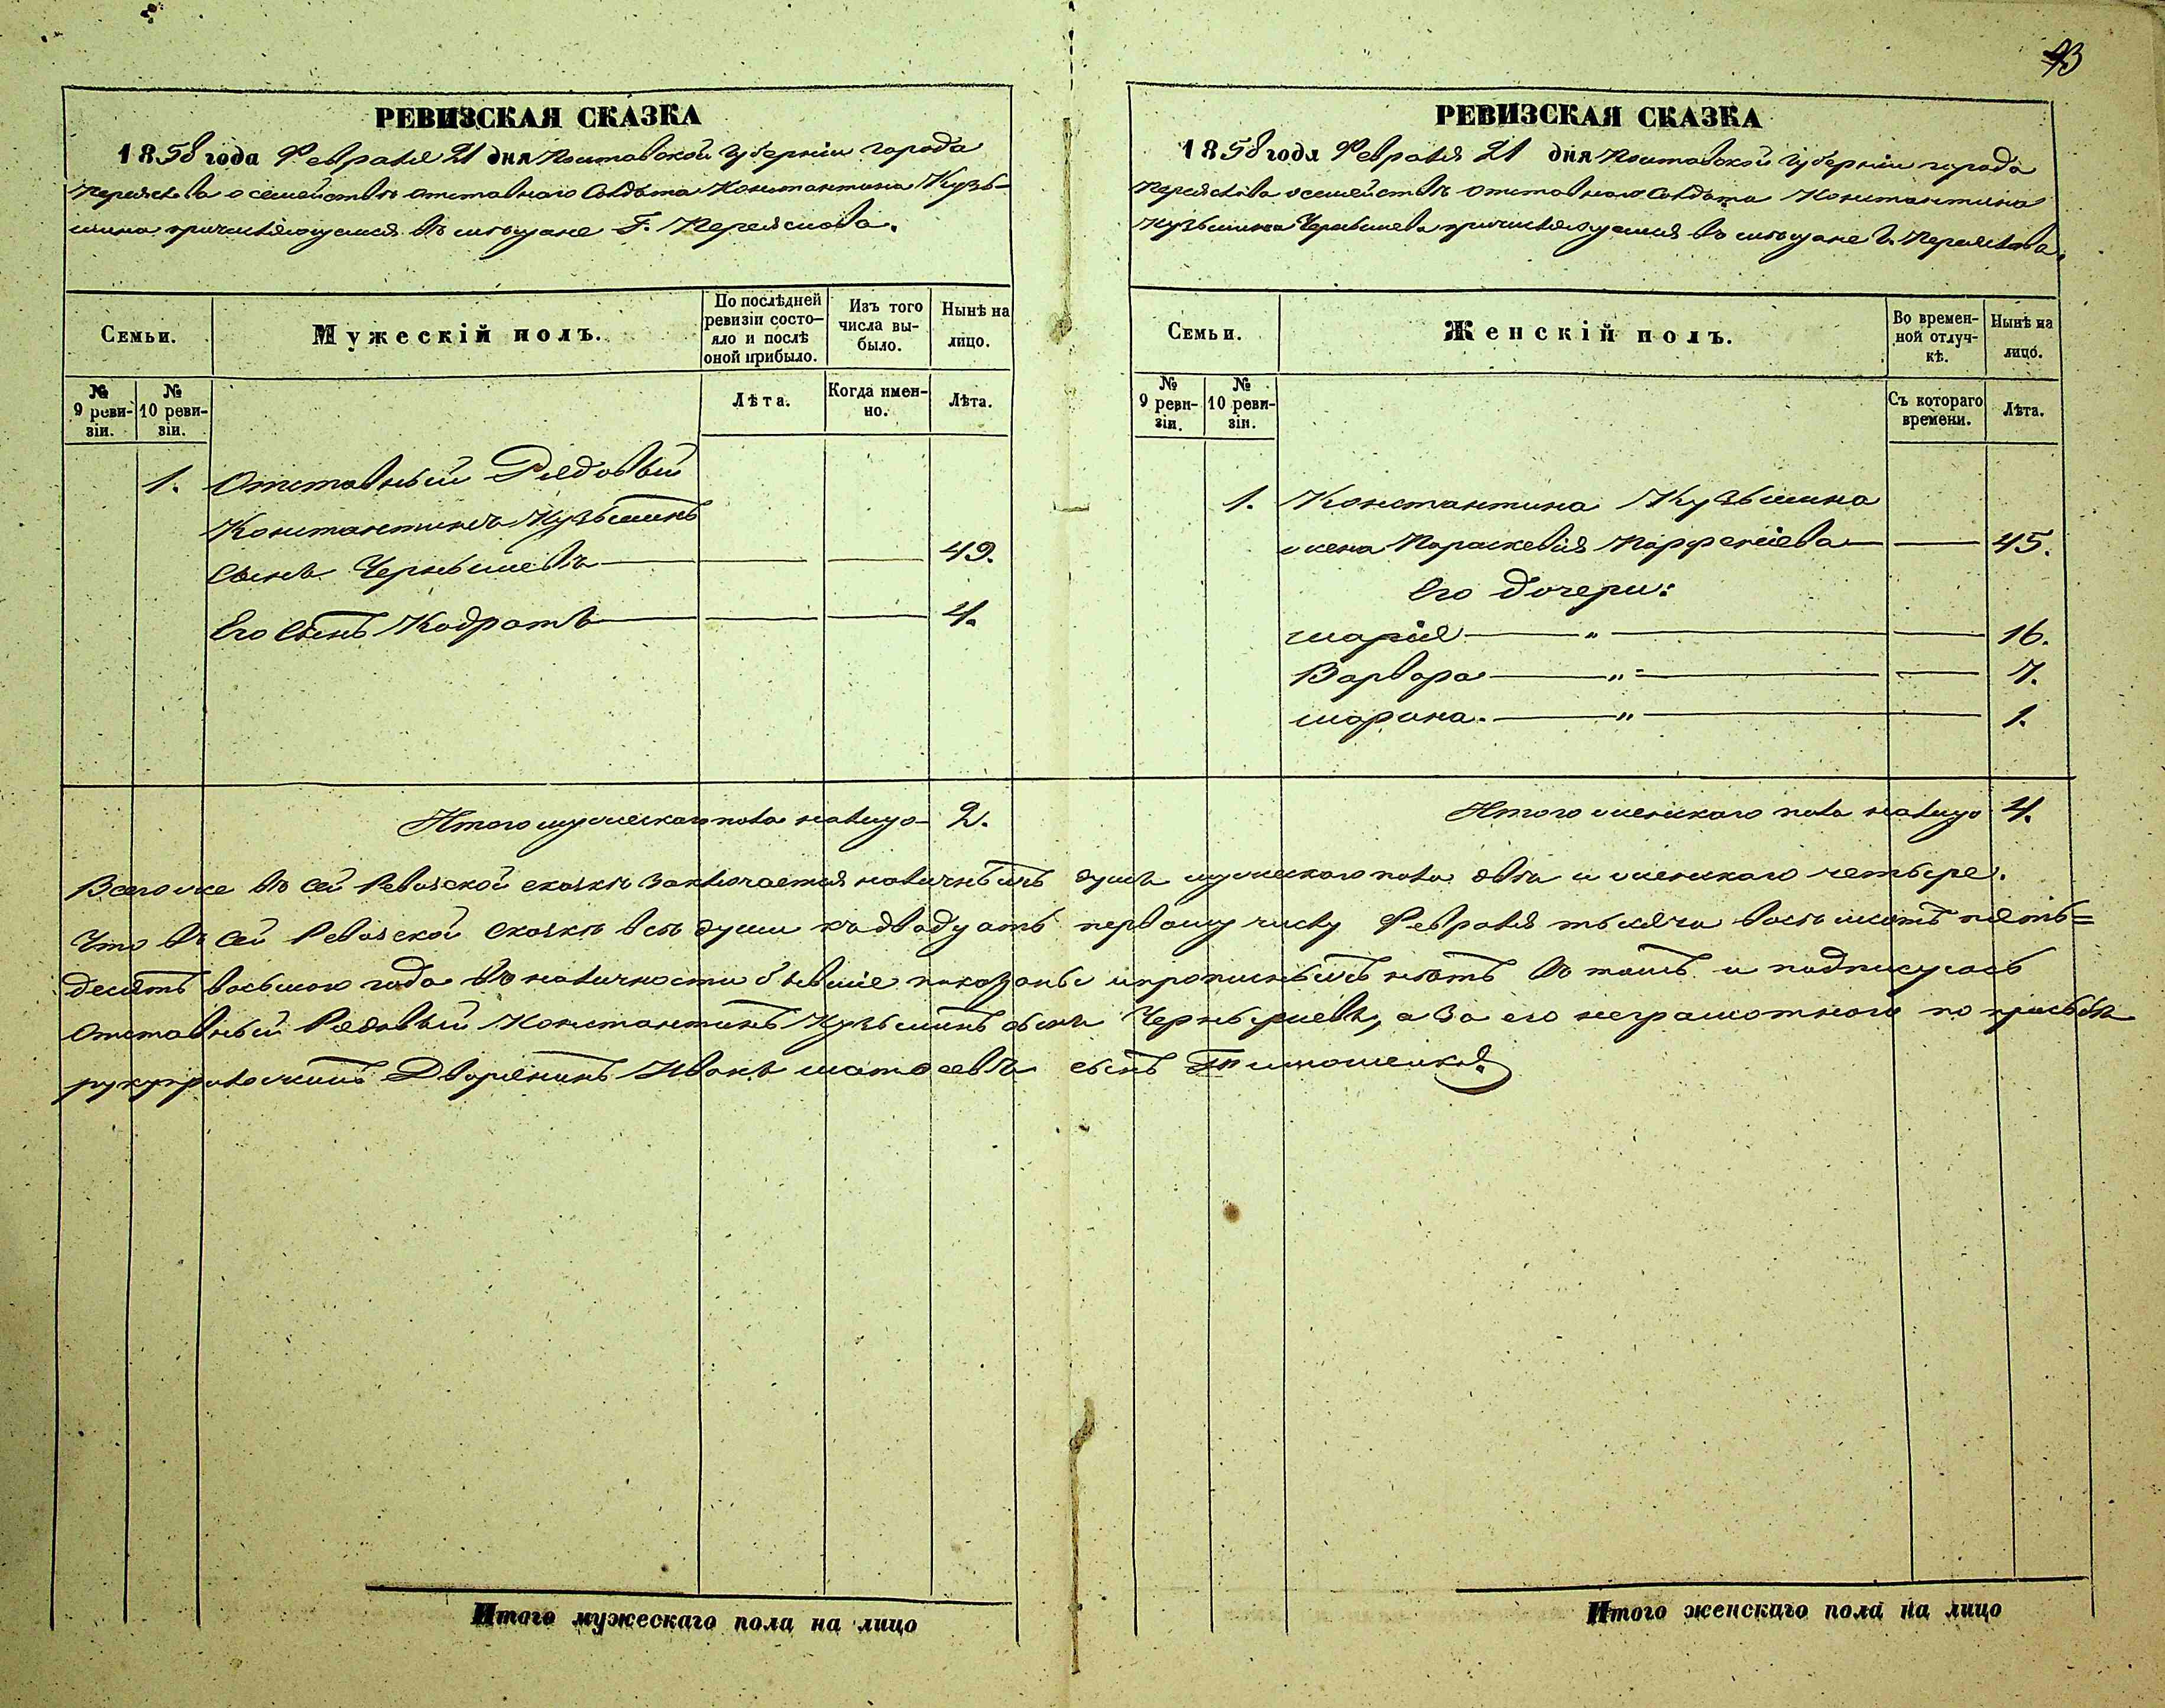 43
РЕВИЗСКАЯ СКАЗКА
1858 года Февраля 21 дня Полтавской Губерніи города
Переяслова о семействѣ отставнаго Солдата Константина Кузь-
мина причисляющемся въ мѣщане Г. Переяслова.
Семьи.
Мужескій полъ.
По послѣдней ревизіи состо-
яло и послѣ оной прибыло.
Изъ того числа вы-
было.
Нынѣ на лицо.
№ 9 реви-
зіи.
№ 10 реви-
зіи.
Лѣта.
Когда имен-
но.
Лѣта.
1. Отставный Рядовый
Константинъ Кузьминъ
сынъ Чернышевъ 49.
Его сынъ Кодратъ 4.
Итого мужескаго пола налицо 2.
РЕВИЗСКАЯ СКАЗКА
1858 года Февраля 21 дня Полтавской Губерніи города
Переяслова о семействѣ отставного Солдата Константина
Кузьмина Чернышева причисляющемся въ мѣщане г. Переяслова.
Семьи.
Женскій полъ.
Во времен-
ной отлуч-
кѣ.
Нынѣ на лицо.
№ 9 реви-
зіи.
№ 10 реви-
зіи.
Съ котораго времени.
Лѣта.
1. Константина Кузьмина
жена Параскевія Парфеніева 45.
Его дочери:
Марія " 16.
Варвара " 7.
Марина. " 1.
Итого женскаго пола налицо 4.
Всего же въ сей Ревизской сказкѣ заключается наличныхъ душъ мужескаго пола двѣ и женскаго четыре.
Что въ сей Ревизской Сказкѣ всѣ души къ двадцать первому числу Февраля тысяча восемьсотъ пять=
десятъ восьмого года въ наличности бывшіе показаны и прописныхъ нѣтъ въ томъ и подписуюсь
Отставный Рядовый Константинъ Кузьминъ сынъ Чернышевъ, а за его неграмотного по прозьбѣ
рукуприложилъ Дворянинъ Иванъ Матвеевъ сынъ Тимошенко.
Итого мужескаго пола на лицо
Итого женскаго пола на лицо